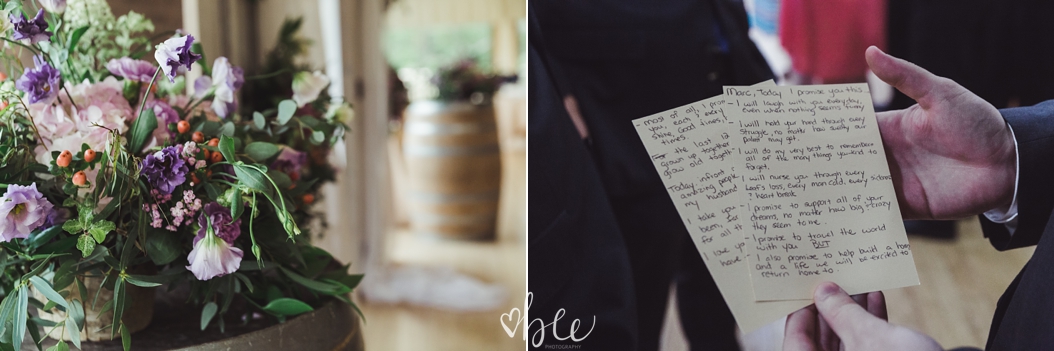 - most of all, I
you, each & every
time.
the last 12
grown up together
grow old
Today, infront
amazing people
my husband
I take you
been, for
for all
I love
have
Marc, Today I promise you this
- I will laugh with you everyday,
even when nothing seems funny.
- I will hold your hand through every
struggle, no matter how sweaty our
palms may get.
- I will do my very best to remember
all of the many things you tend to
forget.
- I will nurse you through every
Leafs loss, every man cold, every
& heart break
- I promise to support all of your
dreams, no matter how big & crazy
they seem to me.
- I promise to travel the world
with you BUT
- I also promise to help build a home
and a life we will be excited to
return home to.
ble
PHOTOGRAPHY